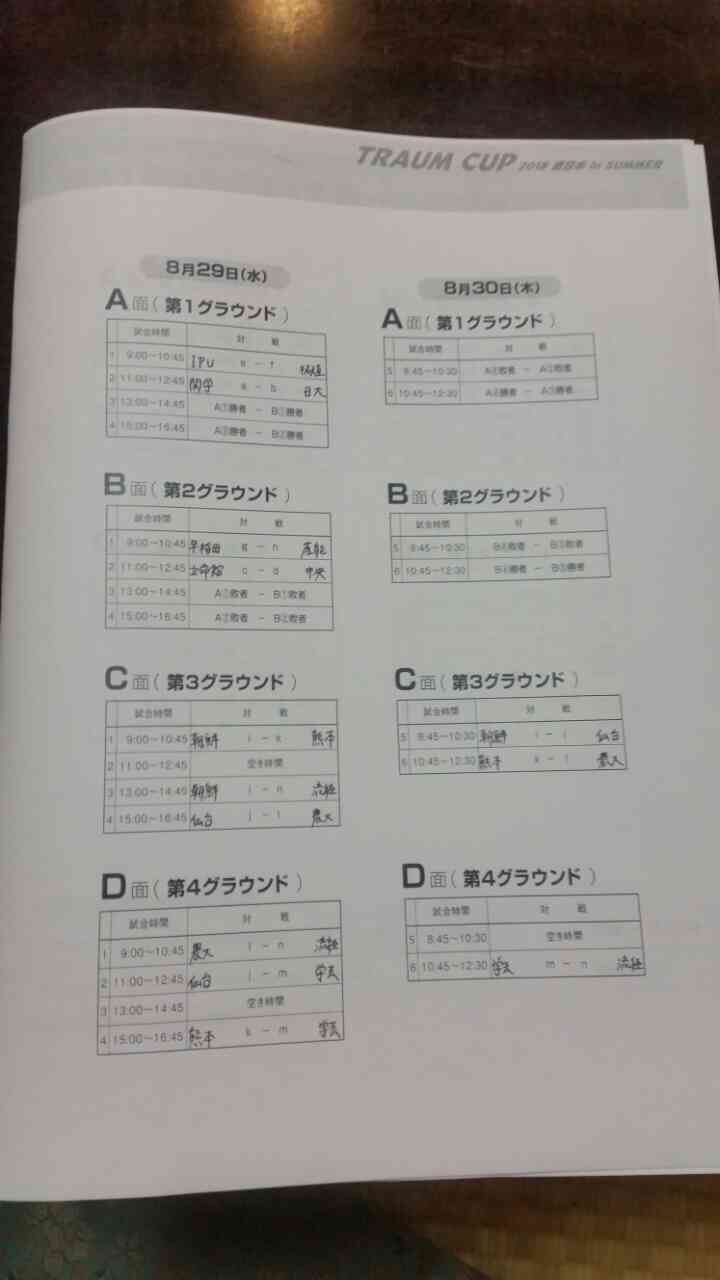 TRAUM CUP 2018 in SUMMER
8月29日(水)
A面( 第1グラウンド )
試合時間 対 戦
1 9:00〜10:45 IPU e - f
2 11:00〜12:45 関学 a - b 日大
3 13:00〜14:45 A①勝者 - B①勝者
4 15:00〜16:45 A②勝者 - B②勝者
B面( 第2グラウンド )
試合時間 対 戦
1 9:00〜10:45 早稲田 g - h 産能
2 11:00〜12:45 立命館 c - d 中央
3 13:00〜14:45 A①敗者 - B①敗者
4 15:00〜16:45 A②敗者 - B②敗者
C面( 第3グラウンド )
試合時間 対 戦
1 9:00〜10:45 朝鮮 i - k 熊本
2 11:00〜12:45 空き時間
3 13:00〜14:45 朝鮮 i - n 流経
4 15:00〜16:45 仙台 j - l 農大
D面( 第4グラウンド )
試合時間 対 戦
1 9:00〜10:45 農大 l - n 流経
2 11:00〜12:45 仙台 j - m 学芸
3 13:00〜14:45 空き時間
4 15:00〜16:45 熊本 k - m 学芸
8月30日(木)
A面( 第1グラウンド )
試合時間 対 戦
5 8:45〜10:30 敗者 - 敗者
6 10:45〜12:30 勝者 - 勝者
B面( 第2グラウンド )
試合時間 対 戦
5 8:45〜10:30 敗者 - 敗者
6 10:45〜12:30 勝者 - 勝者
C面( 第3グラウンド )
試合時間 対 戦
5 8:45〜10:30 朝鮮 i - j 仙台
6 10:45〜12:30 熊本 k - l 農大
D面( 第4グラウンド )
試合時間 対 戦
5 8:45〜10:30 空き時間
6 10:45〜12:30 学芸 m - n 流経